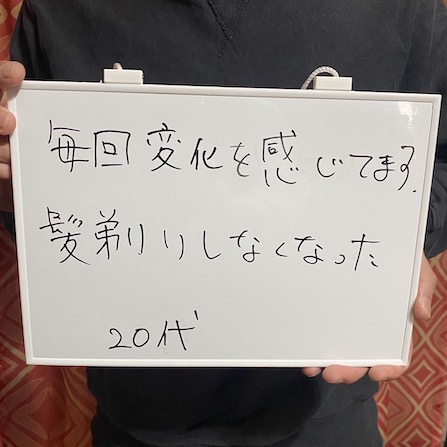 毎回変化を感じてます.
髪剃りしなくなった
20代